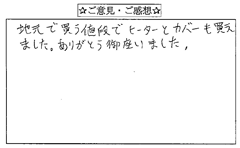 ☆ご意見・ご感想☆
地元で買う値段でヒーターとカバーも買え
ました。ありがとう御座いました，